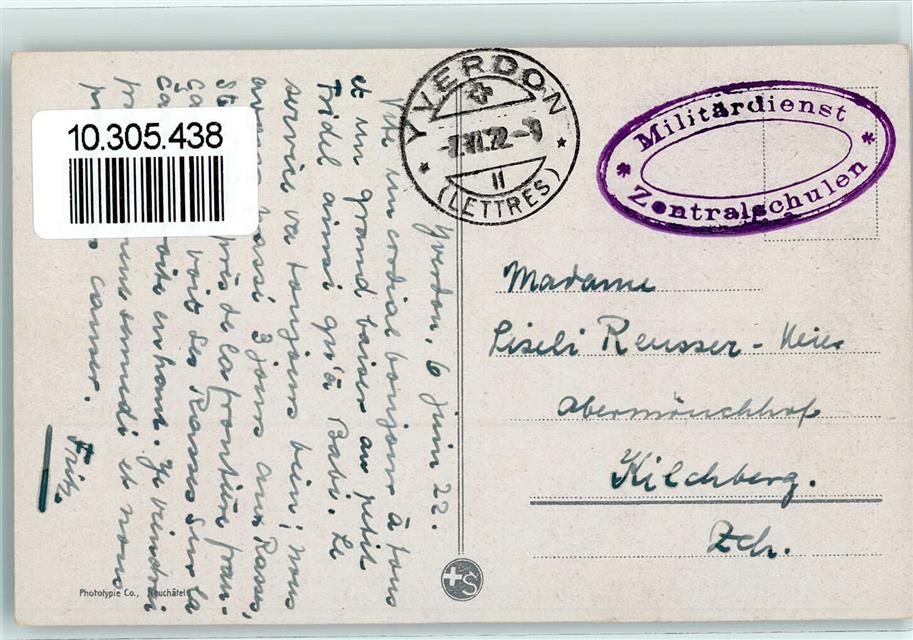 10.305.438
YVERDON
-7.VI.22.-9
II
(LETTRES)
* Militärdienst *
Zentralschulen
Yverdon, 6 juin 22.
Vite un cordial bonjour à tous
et un grand baiser au petit
Fridel ainsi qu'à Babi. Le
service va toujours bien; nous
avons passé 3 jours aux Rasses,
près de la frontière fran-
voit des Rasses sur la
en haut. Je viendrai
samedi et nous
causer.
Fritz
Madame
Liseli Reusser-Meier
Obermönchhof
Kilchberg.
Zch.
Phototypie Co., Neuchâtel
+S